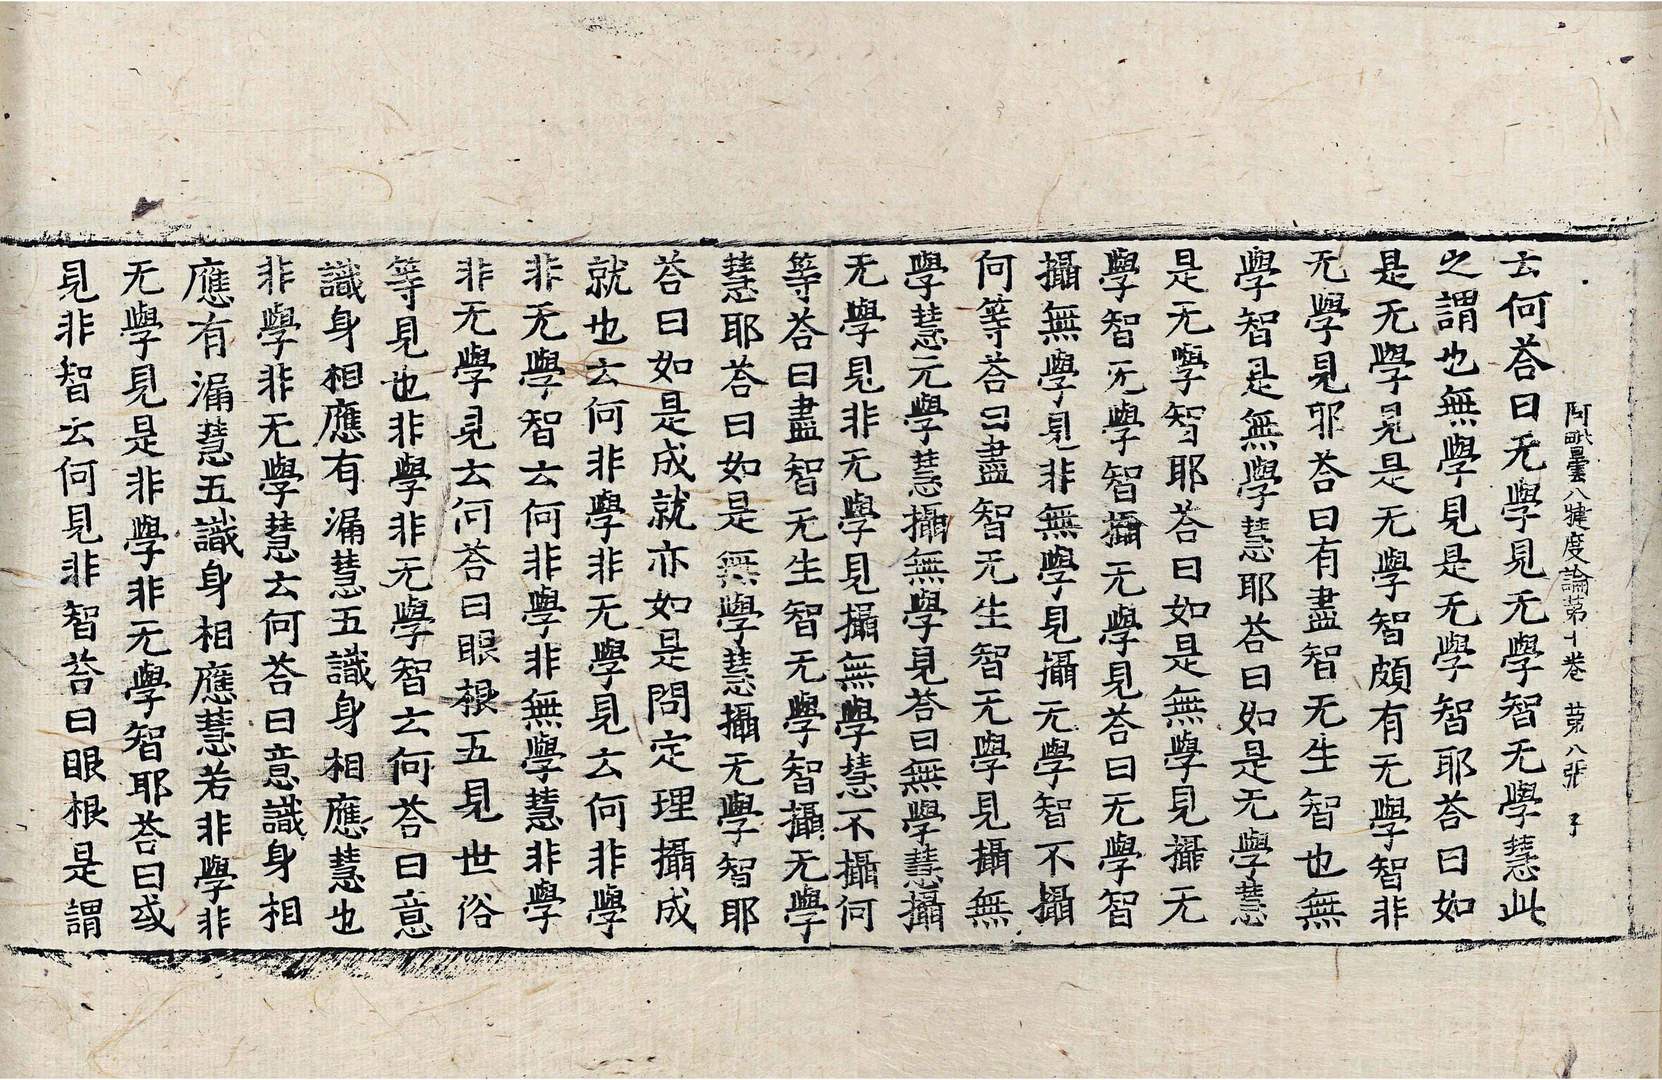 阿毗曇八犍度論第十卷 第八張 子
云何荅曰无學見无學智无學慧此
之謂也無學見是无學智耶荅曰如
是无學見是无學智頗有无學智非
无學見耶荅曰有盡智无生智也無
學智是無學慧耶荅曰如是无學慧
是无學智耶荅曰如是無學見攝无
學智无學智攝无學見荅曰无學智
攝無學見非無學見攝无學智不攝
何等荅曰盡智无生智无學見攝無
學慧元學慧攝無學見荅曰無學慧攝
无學見非无學見攝無學慧不攝何
等荅曰盡智无生智无學智攝无學
慧耶荅曰如是無學慧攝无學智耶
荅曰如是成就亦如是問定理攝成
就也云何非學非无學見云何非學
非无學智云何非學非無學慧非學
非无學見云何荅曰眼根五見世俗
等見也非學非无學智云何荅曰意
識身相應有漏慧五識身相應慧也
非學非无學慧云何荅曰意識身相
應有漏慧五識身相應慧若非學非
无學見是非學非无學智耶荅曰或
見非智云何見非智荅曰眼根是謂